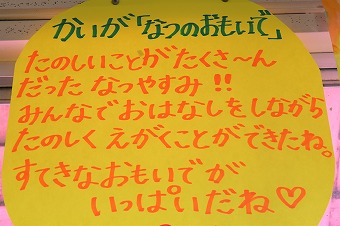 かいが「なつのおもいで」
たのしいことがたくさ～ん
だった なつやすみ!!
みんなでおはなしをしながら
たのしく えがくことができたね。
すてきなおもいでが
いっぱいだね♡